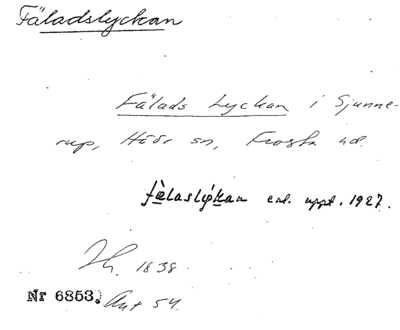 Fäladslyckan
Fälads Lyckan i Sjunne-
rup, Höör sn, Frosta hd.
fälaslýkan enl. uppt. 1927.
1838
Nr 6853. Ant 54.